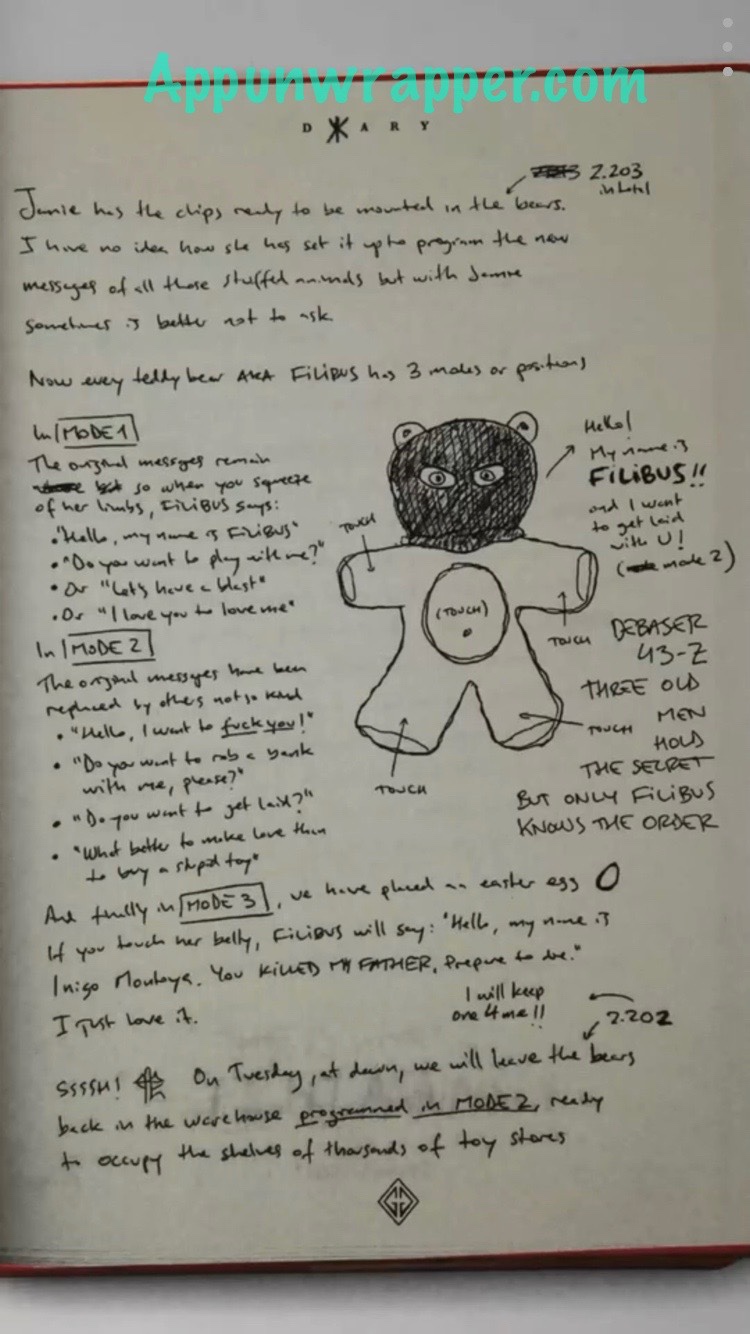 Appunwrapper.com
D ARY
2.203
in hotel
Jamie has the chips ready to be mounted in the bears.
I have no idea how she has set it up to program the new
messages of all those stuffed animals but with Jamie
sometimes is better not to ask.
Now every teddy bear AKA FILIBUS has 3 modes or positions
In MODE 1
The original messages remain
so when you squeeze
of her limbs, FILIBUS says:
• "Hello, my name is FILIBUS"
• "Do you want to play with me?"
• Or "Let's have a blast"
• Or "I love you to love me"
In MODE 2
The original messages have been
replaced by others not so kind
• "Hello, I want to fuck you!"
• "Do you want to rob a bank
with me, please?"
• "Do you want to get laid?"
• "What better to make love than
to buy a stupid toy"
Hello!
My name is
FILIBUS!!
and I want
to get laid
with U!
(mode 2)
TOUCH
(TOUCH)
TOUCH
TOUCH
TOUCH
DEBASER
43-Z
THREE OLD
MEN
HOLD
THE SECRET
BUT ONLY FILIBUS
KNOWS THE ORDER
And finally in MODE 3, we have placed an easter egg
If you touch her belly, FILIBUS will say: "Hello, my name is
Inigo Montoya. YOU KILLED MY FATHER. Prepare to die."
I just love it.
I will keep
one 4 me!!
2.202
SSSSH! On Tuesday, at dawn, we will leave the bears
back in the warehouse programmed in MODE 2, ready
to occupy the shelves of thousands of toy stores